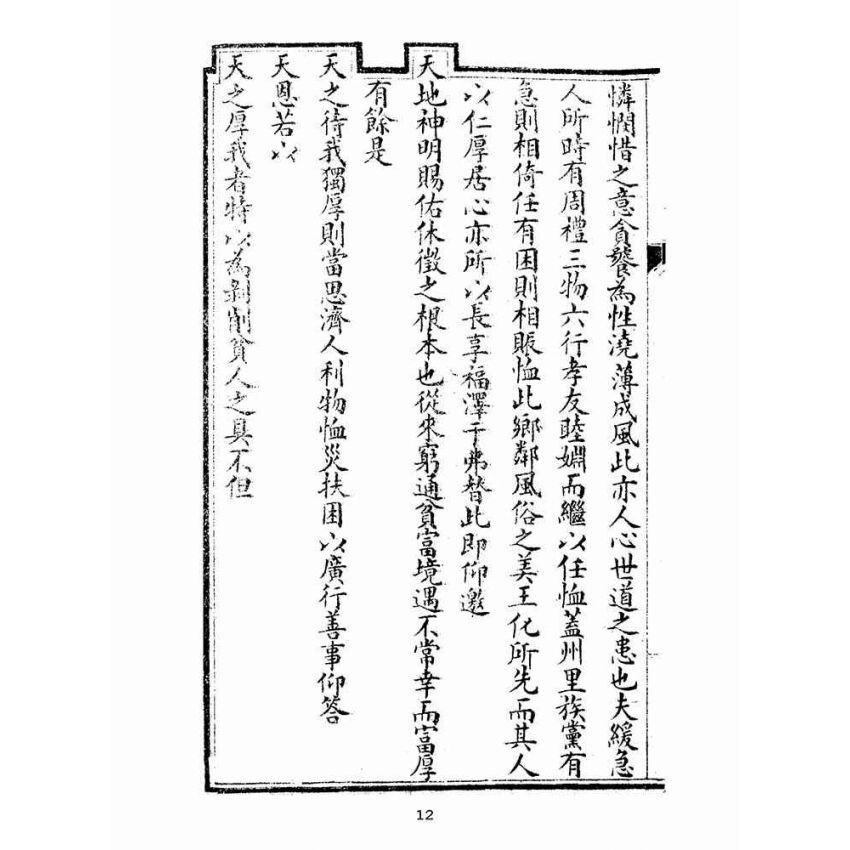 憐憫惜之意貪饕為性澆薄成風此亦人心世道之患也夫緩急
人所時有周禮三物六行孝友睦婣而繼以任恤蓋州里族黨有
急則相倚任有困則相賑恤此鄉鄰風俗之美王化所先而其人
以仁厚居心亦所以長享福澤于弗替此即仰邀
天地神明賜佑休徵之根本也從來窮通貧富境遇不常幸而富厚
有餘是
天之待我獨厚則當思濟人利物恤災扶困以廣行善事仰答
天恩若以
天之厚我者特以為剝削貧人之具不但
12